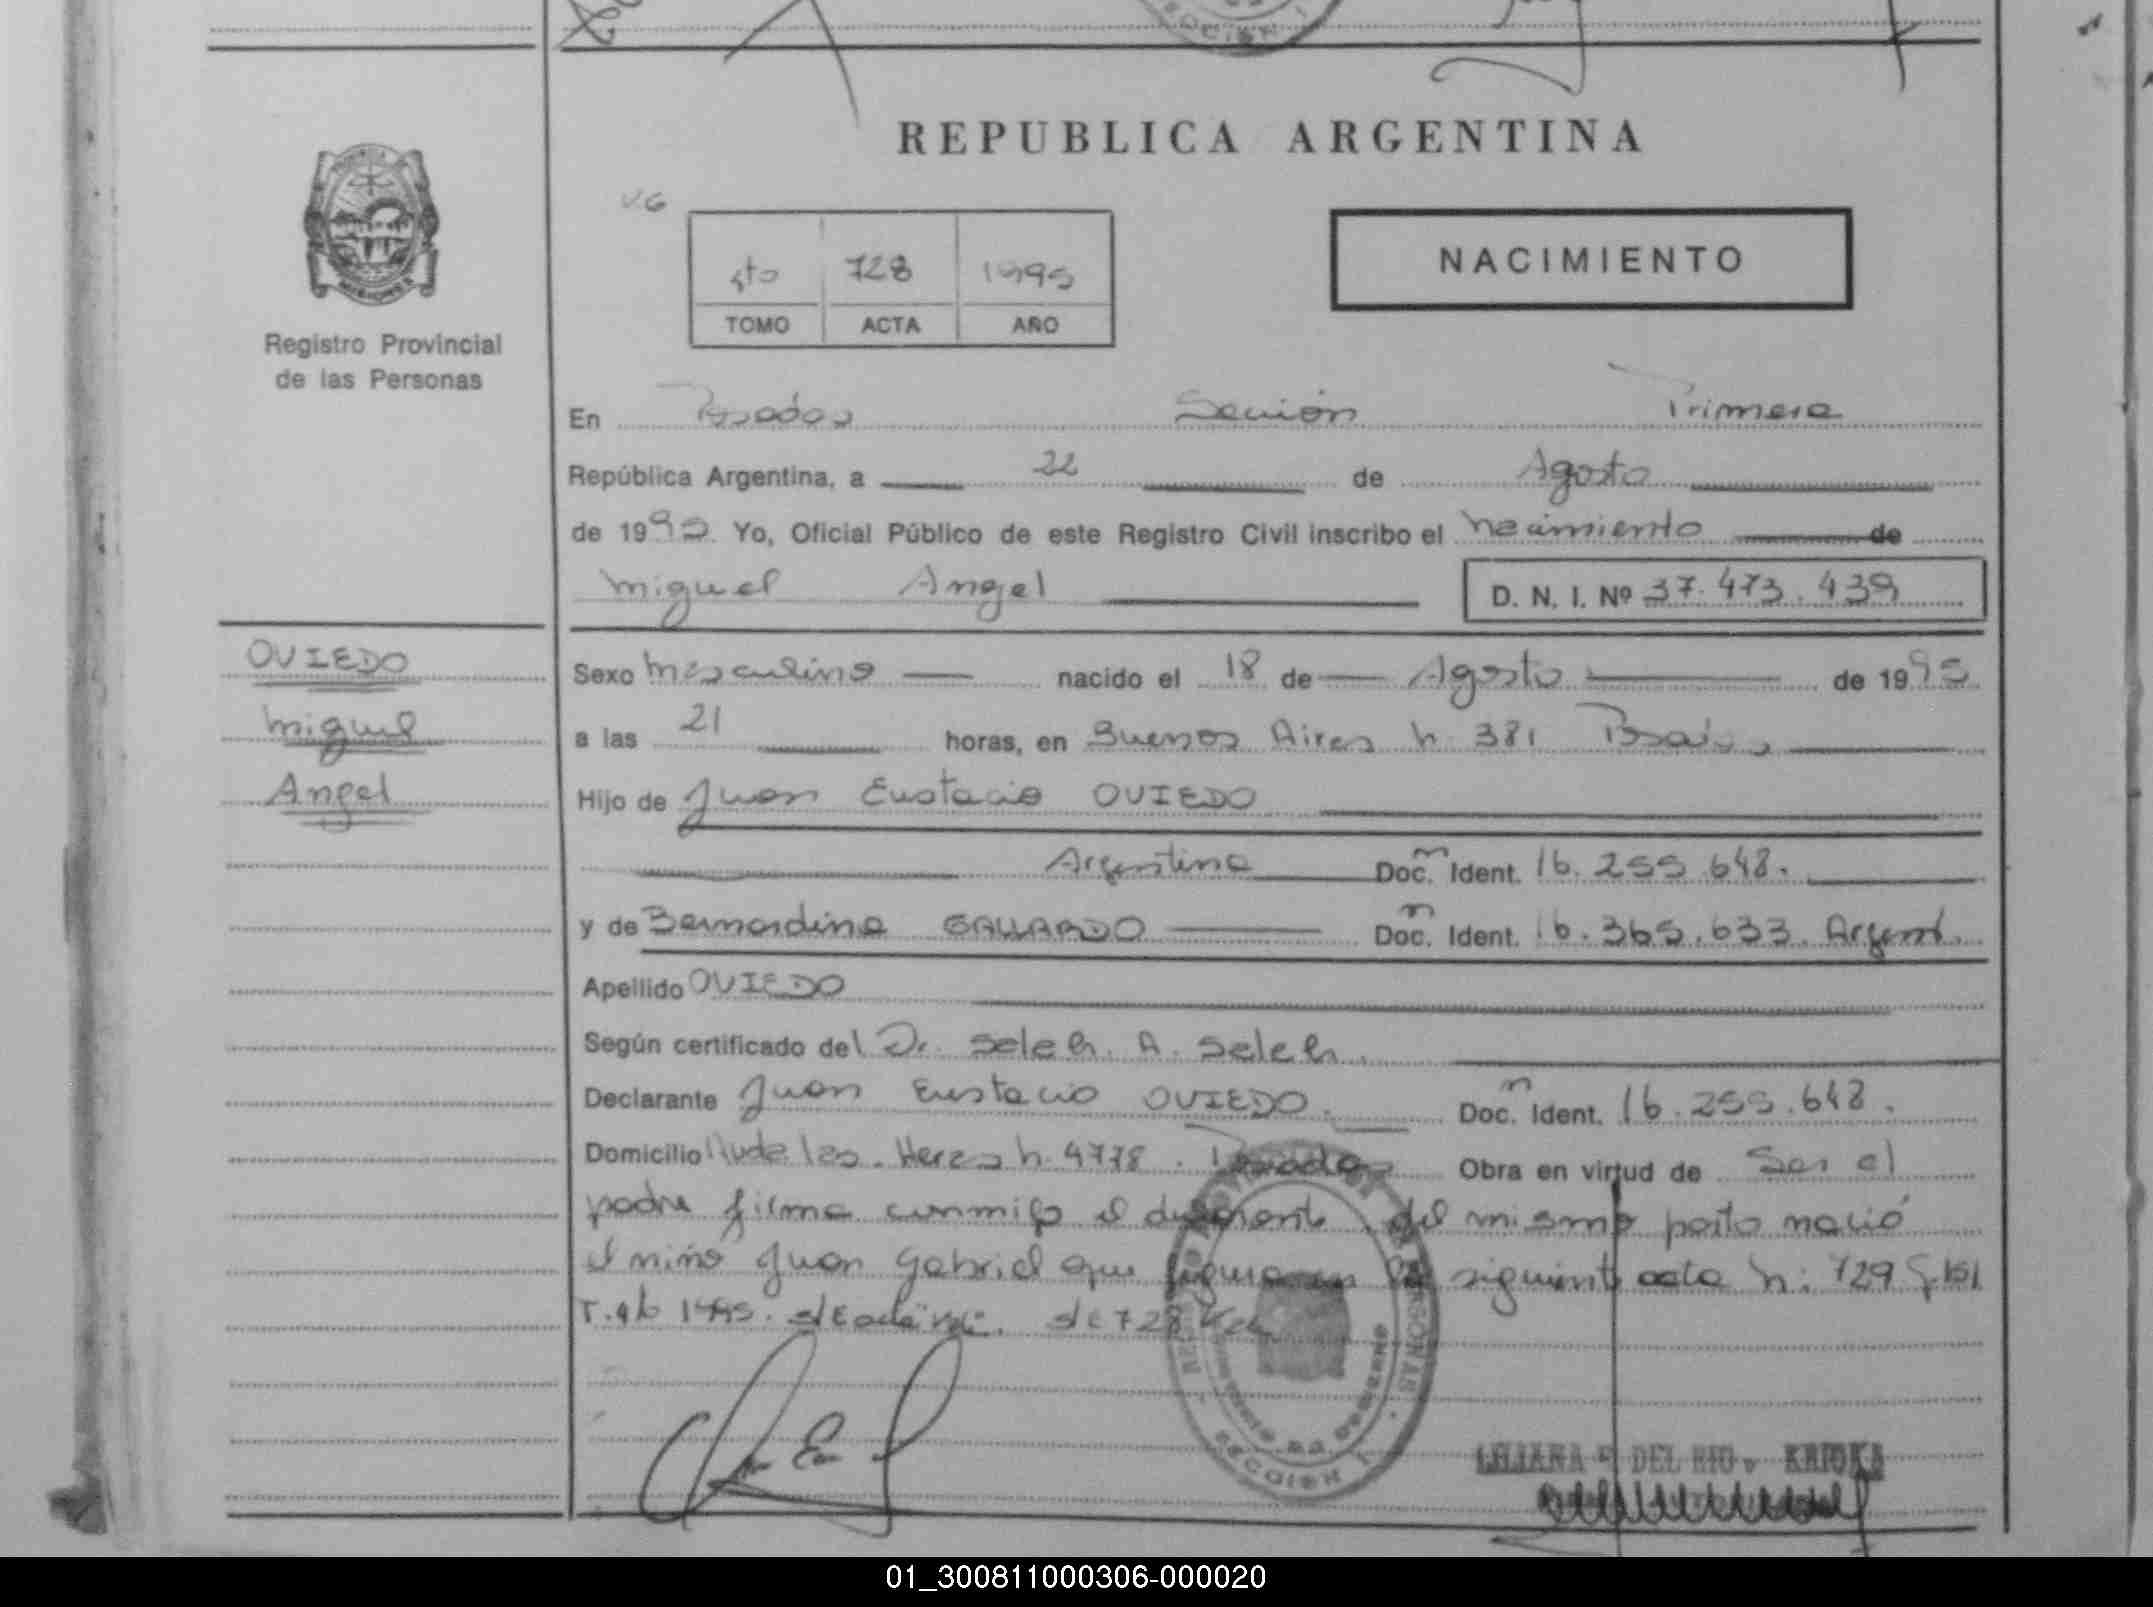 REPUBLICA ARGENTINA
NACIMIENTO
4to 728 1995
TOMO ACTA AÑO
Registro Provincial
de las Personas
En Posadas Sección Primera
República Argentina, a 22 de Agosto
de 1995. Yo, Oficial Público de este Registro Civil inscribo el nacimiento de
Miguel Angel D. N. I. Nº 37.473.439
OVIEDO
Miguel
Angel
Sexo Masculino nacido el 18 de Agosto de 1995
a las 21 horas, en Buenos Aires n 381 Posadas
Hijo de Juan Eustacio OVIEDO
Argentino Doc. Ident. 16.255.648.
y de Bernardina GALLARDO Doc. Ident. 16.365.633. Argent.
Apellido OVIEDO
Según certificado del Dr. Seleh. A. Seleh.
Declarante Juan Eustacio OVIEDO. Doc. Ident. 16.255.648.
Domicilio Heras n. 4778. Posadas Obra en virtud de Ser el
padre firma conmigo el declarante. del mismo parto nació
el niño Juan Gabriel que figura en la siguiente acta n: 729 f.151
T. 4to 1995.
SECCION 1
LILIANA DEL RIO
01_300811000306-000020